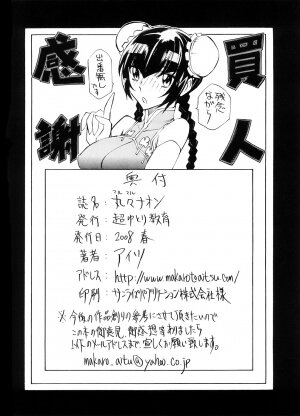 買人
感謝
残念
ながら
出番無し
です
奥付
誌名：丸々ナオン
発行：超ゆとり教育
発行日：2008 春
著者：アイツ
アドレス：http://www.makarotsaitsu.com/
印刷：サンライズパブリケーション株式会社様
※今後の作品創りの参考にさせて頂きたいので
この本の御意見、御感想等ありましたら
以下のメールアドレスまで、宜しくお願い致します。
makaro.aitu@yahoo.co.jp